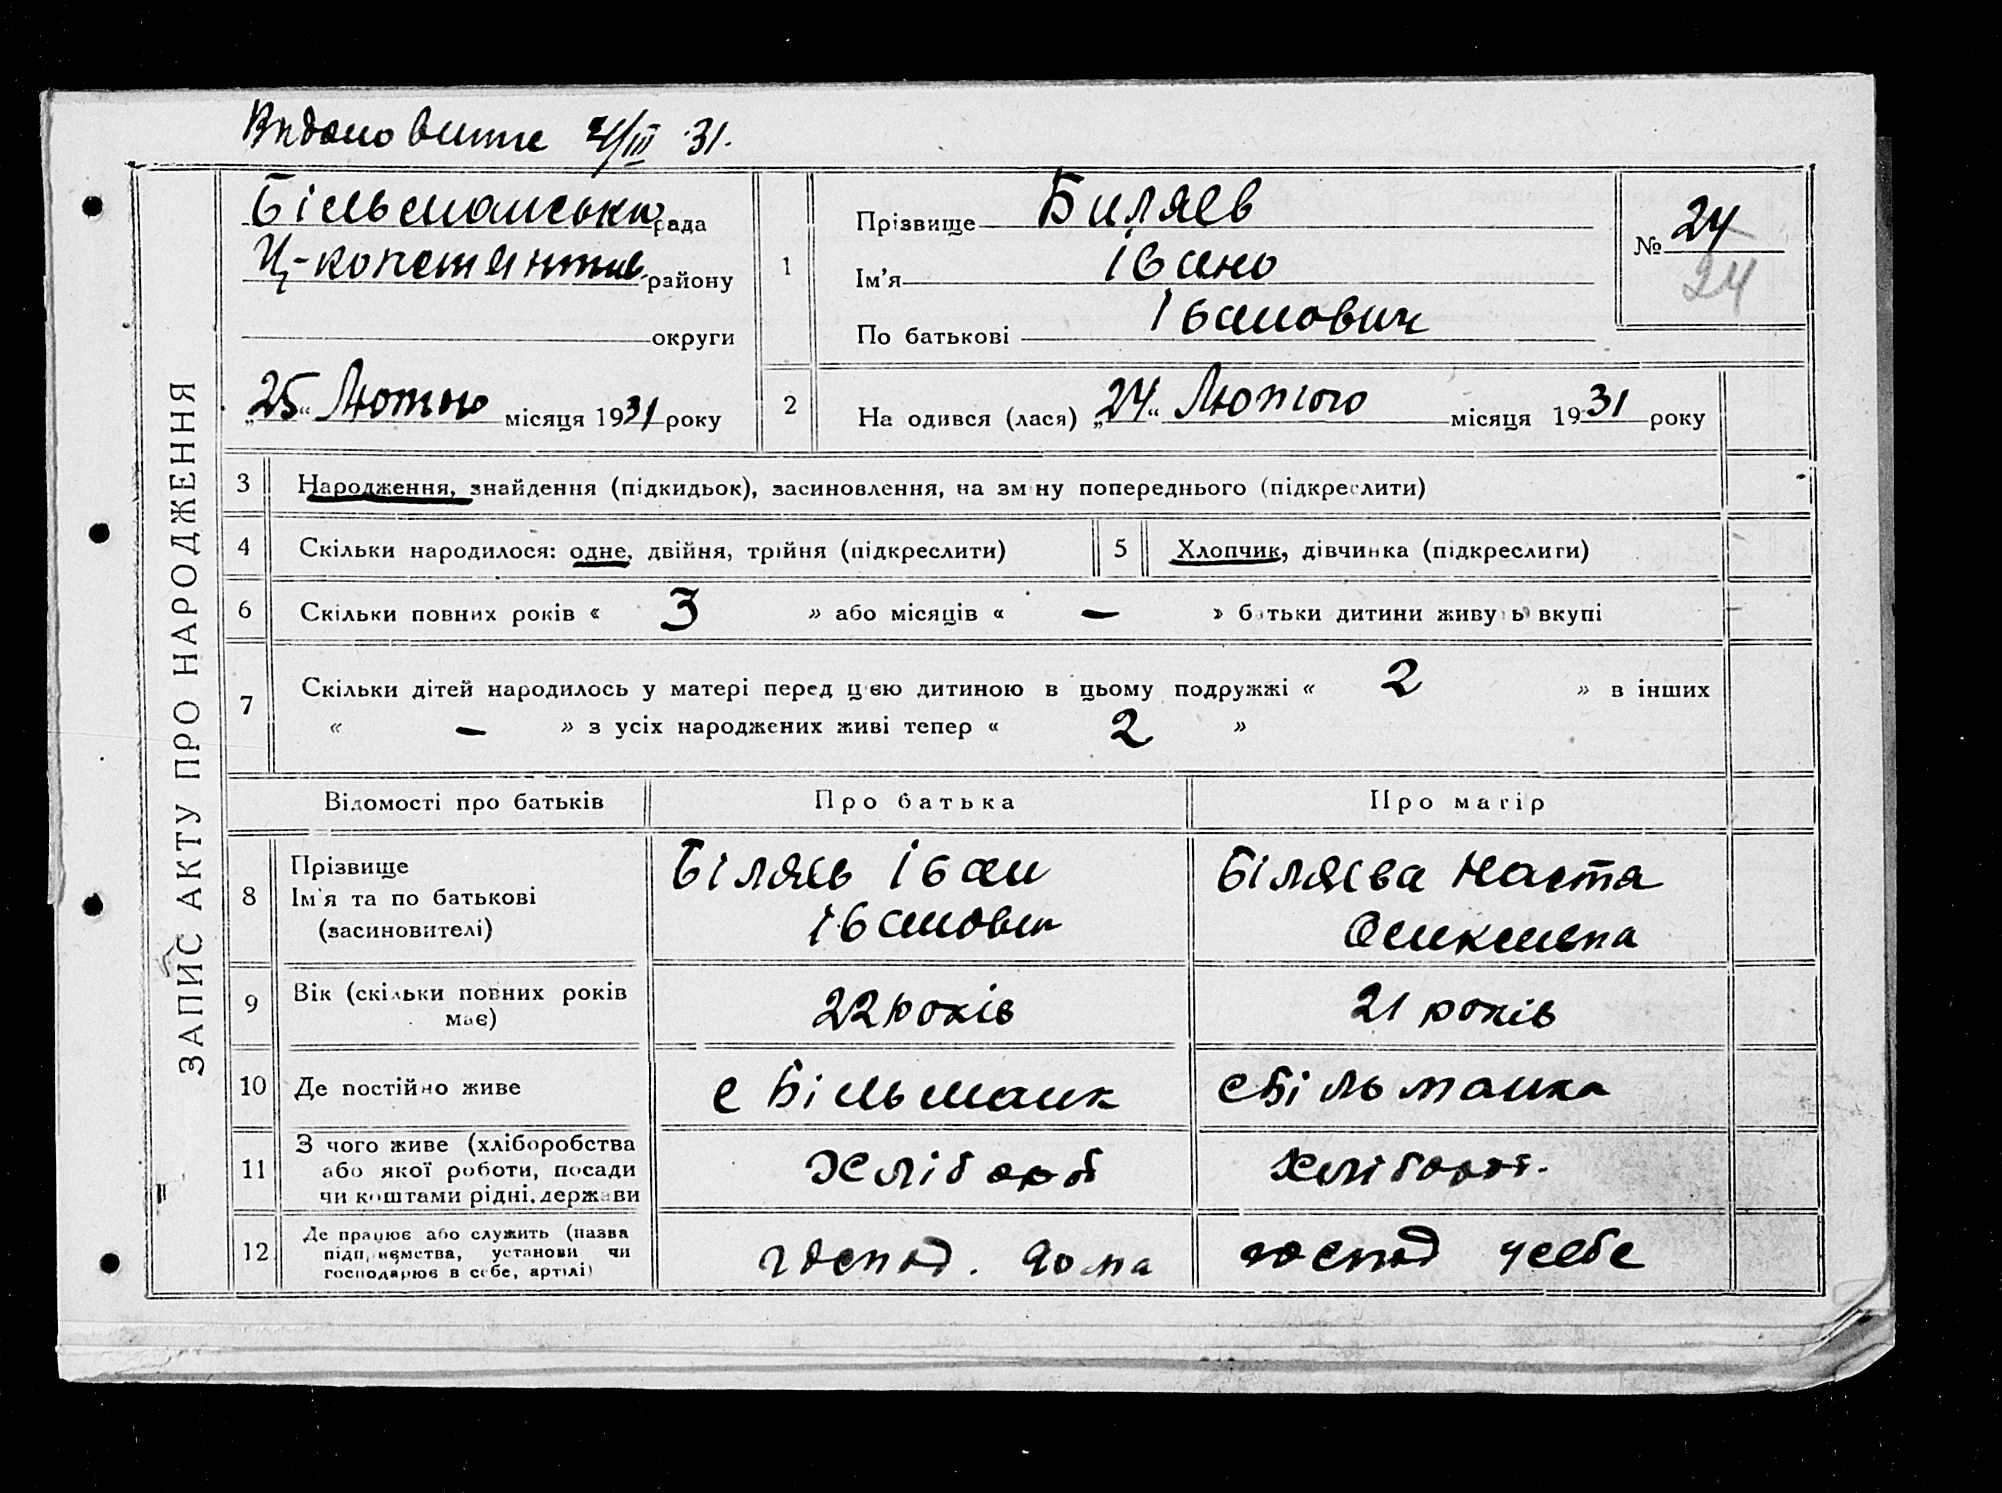 Видано витяг 4/III 31.
ЗАПИС АКТУ ПРО НАРОДЖЕННЯ
Більманська рада
Ц-Константинів. району
округи
„25“ Лютого місяця 1931 року
1
Прізвище Биляев
Ім'я Івано
По батькові Іванович
№ 24
24
2
На одився (лася) „24“ Лютого місяця 1931 року
3 Народження, знайдення (підкидьок), засиновлення, на зм ну попереднього (підкреслити)
4 Скільки народилося: одне, двійня, трійня (підкреслити) 5 Хлопчик, дівчинка (підкреслити)
6 Скільки повних років « 3 » або місяців « — » батьки дитини живуть вкупі
7 Скільки дітей народилось у матері перед цією дитиною в цьому подружжі « 2 » в інших
« — » з усіх народжених живі тепер « 2 »
Відомості про батьків Про батька Про матір
8 Прізвище
Ім'я та по батькові
(засиновителі)
Біляєв Іван
Іванович
Біляєва Настя
9 Вік (скільки повних років
має)
22 років
21 років
10 Де постійно живе
с Більманк
с Більманка
11 З чого живе (хліборобства
або якої роботи, посади
чи коштами рідні, держави
Хлібороб
Хлібороб.
12 Де працює або служить (назва
підприємства, установи чи
господарює в себе, артілі)
господ. дома
господ у себе